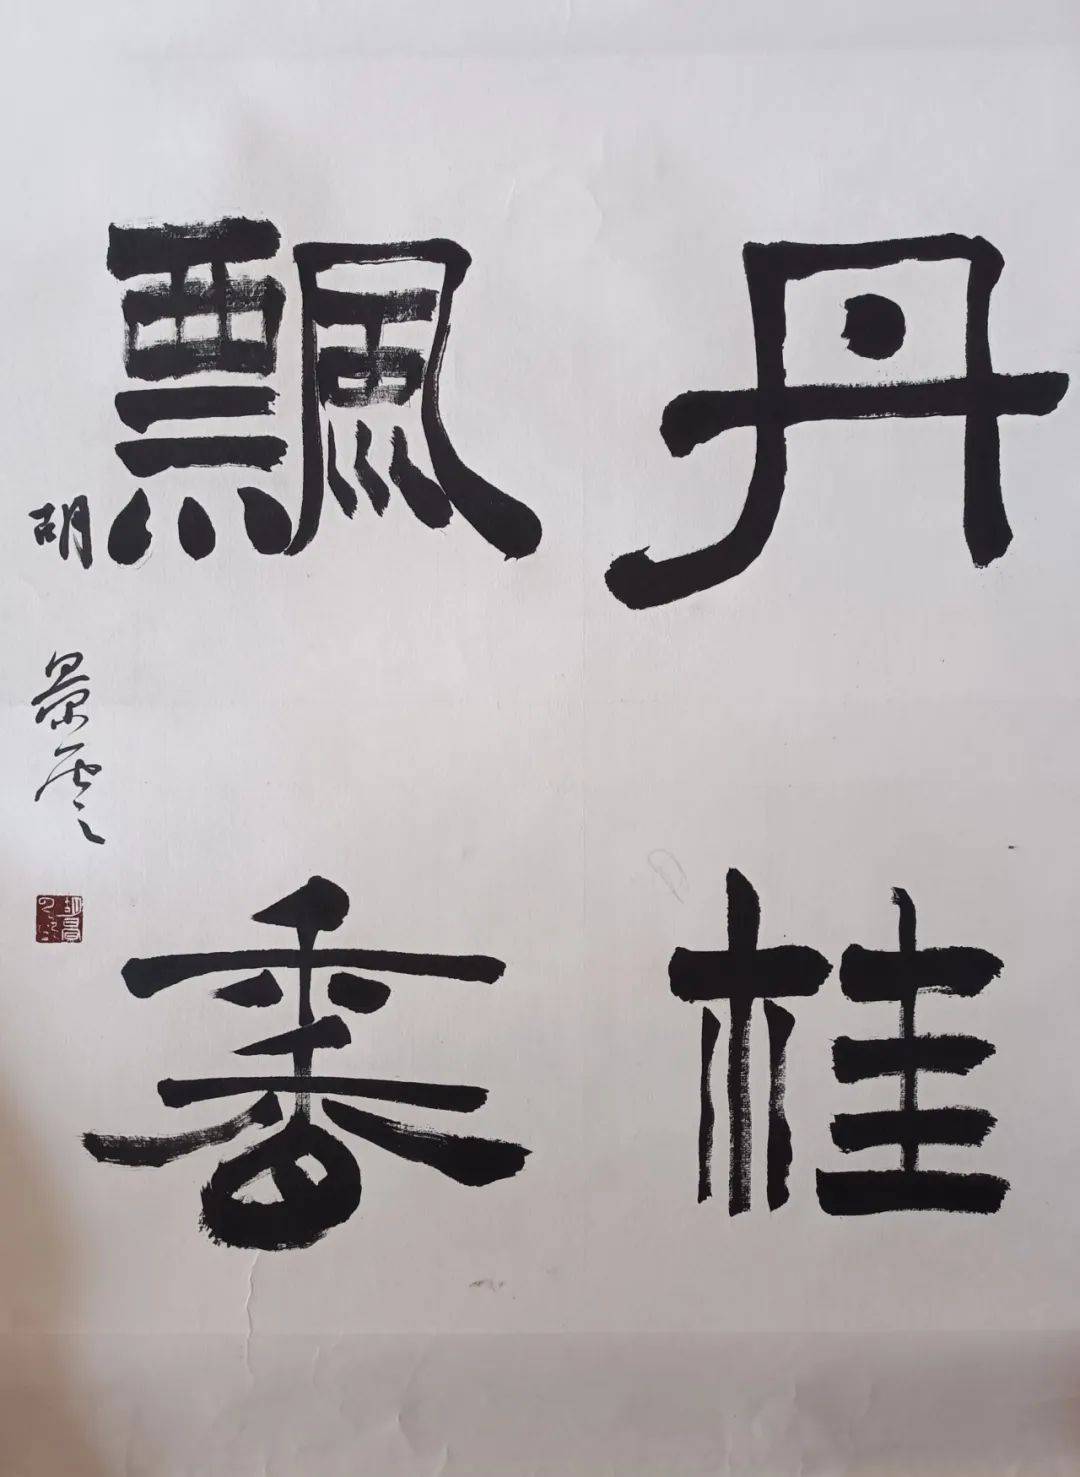 丹桂
飄香
胡景